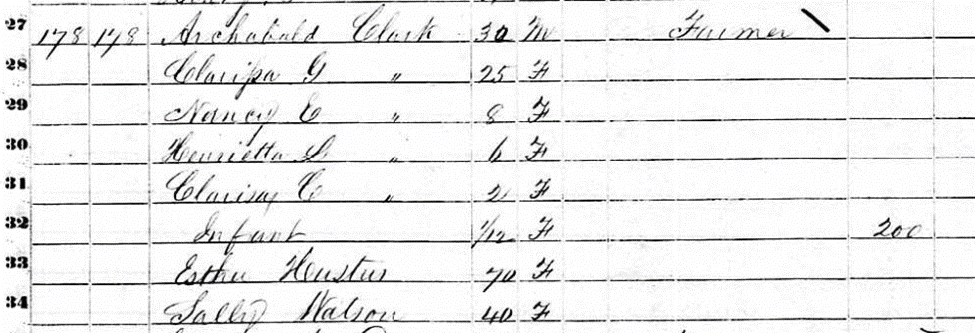 27 178 178 Archabald Clark 30 M Farmer
28 Clarissa G " 25 F
29 Nancy E " 8 F
30 Henrietta L " 6 F
31 Clarisa C " 2 F
32 Infant 1/12 F 200
33 Esther 70 F
34 Sally Watson 40 F